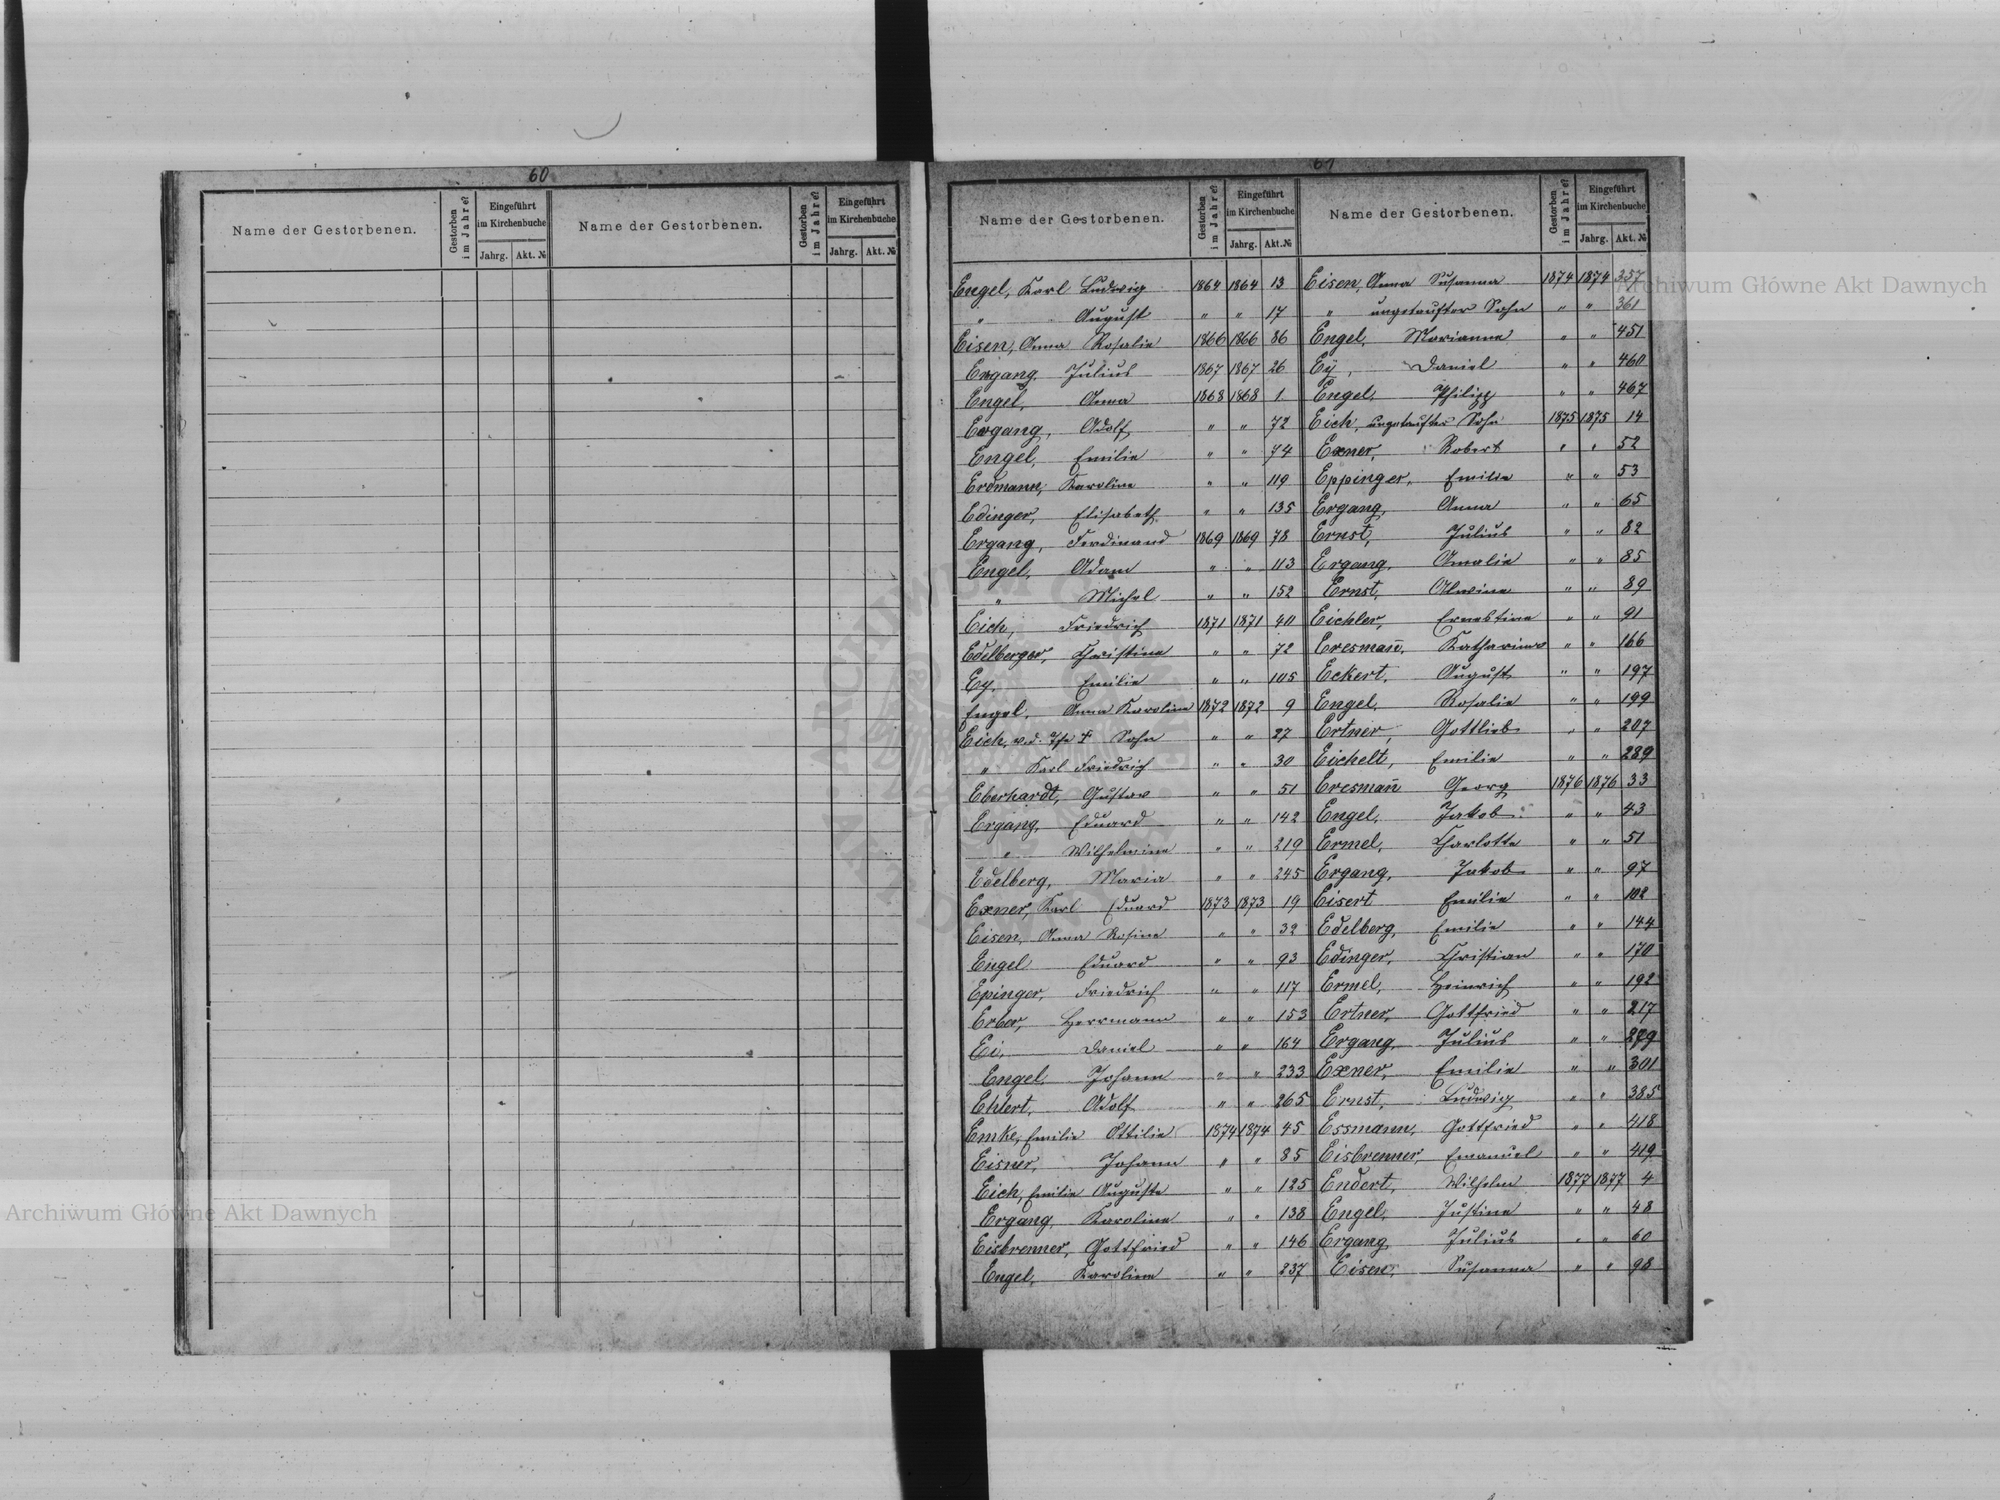 60
Name der Gestorbenen. Gestorben im Jahre? Eingeführt im Kirchenbuche Jahrg. Akt. № Name der Gestorbenen. Gestorben im Jahre? Eingeführt im Kirchenbuche Jahrg. Akt. №
61
Name der Gestorbenen. Gestorben im Jahre? Eingeführt im Kirchenbuche Jahrg. Akt. № Name der Gestorbenen. Gestorben im Jahre? Eingeführt im Kirchenbuche Jahrg. Akt. №
Engel, Karl Ludwig 1864 1864 13
" August " " 17
Eisen, Anna Rosalie 1866 1866 86
Ergang Julius 1867 1867 26
Engel, Anna 1868 1868 1
Ergang, Adolf " " 72
Engel, Emilie " " 74
Erdmann, Karoline " " 119
Edinger, Elisabeth " " 135
Ergang, Ferdinand 1869 1869 78
Engel, Adam " " 113
" Michel " " 152
Eich, Friedrich 1871 1871 40
Edelberger, Christine " " 72
Ey, Emilie " " 105
Engel, Anna Karoline 1872 1872 9
Eich, Sohn " " 27
" Karl Friedrich " " 30
Eberhardt, Gustav " " 51
Ergang, Eduard " " 142
" Wilhelmine " " 219
Edelberg, Maria " " 245
Exner, Karl Eduard 1873 1873 19
Eisen, Anna Rosine " " 32
Engel Eduard " " 93
Epinger, Friedrich " " 117
Erber, Herrmann " " 153
Ei, Daniel " " 164
Engel, Johann " " 233
Ehlert, Adolf " " 265
Emke, Emilie Ottilie 1874 1874 45
Eisner, Johann " " 85
Eich, Emilie Auguste " " 125
Ergang, Karoline " " 138
Eisbrenner, Gottfried " " 146
Engel, Karoline " " 237
Eisen, Anna Susanna 1874 1874 357
" ungetaufter Sohn " " 361
Engel, Marianna " " 451
Ey, Daniel " " 460
Engel, Philipp " " 467
Eich, ungetaufter Sohn 1875 1875 14
Exner, Robert " " 52
Eppinger, Emilie " " 53
Ergang, Anna " " 65
Ernst, Julius " " 82
Ergang, Amalie " " 85
Ernst, Alwine " " 89
Eichler, Ernestine " " 91
Eresman̄, Katharina " " 166
Eckert, August " " 197
Engel, Rosalie " " 199
Ertner, Gottlieb " " 207
Eichelt, Emilie " " 289
Eresman̄ Georg 1876 1876 33
Engel, Jakob " " 43
Ermel, Charlotte " " 51
Ergang, Jakob " " 97
Eisert Emilie " " 102
Edelberg, Emilie " " 144
Edinger, Christian " " 170
Ermel, Heinrich " " 192
Ertner, Gottfried " " 217
Ergang, Julius " " 279
Exner, Emilie " " 301
Ernst, Ludwig " " 385
Essmann, Gottfried " " 418
Eisbrenner, Emanuel " " 419
Endert, Wilhelm 1877 1877 4
Engel, Justine " " 48
Ergang Julius " " 60
Eisen, Susanna " " 98
Archiwum Główne Akt Dawnych
Archiwum Główne Akt Dawnych